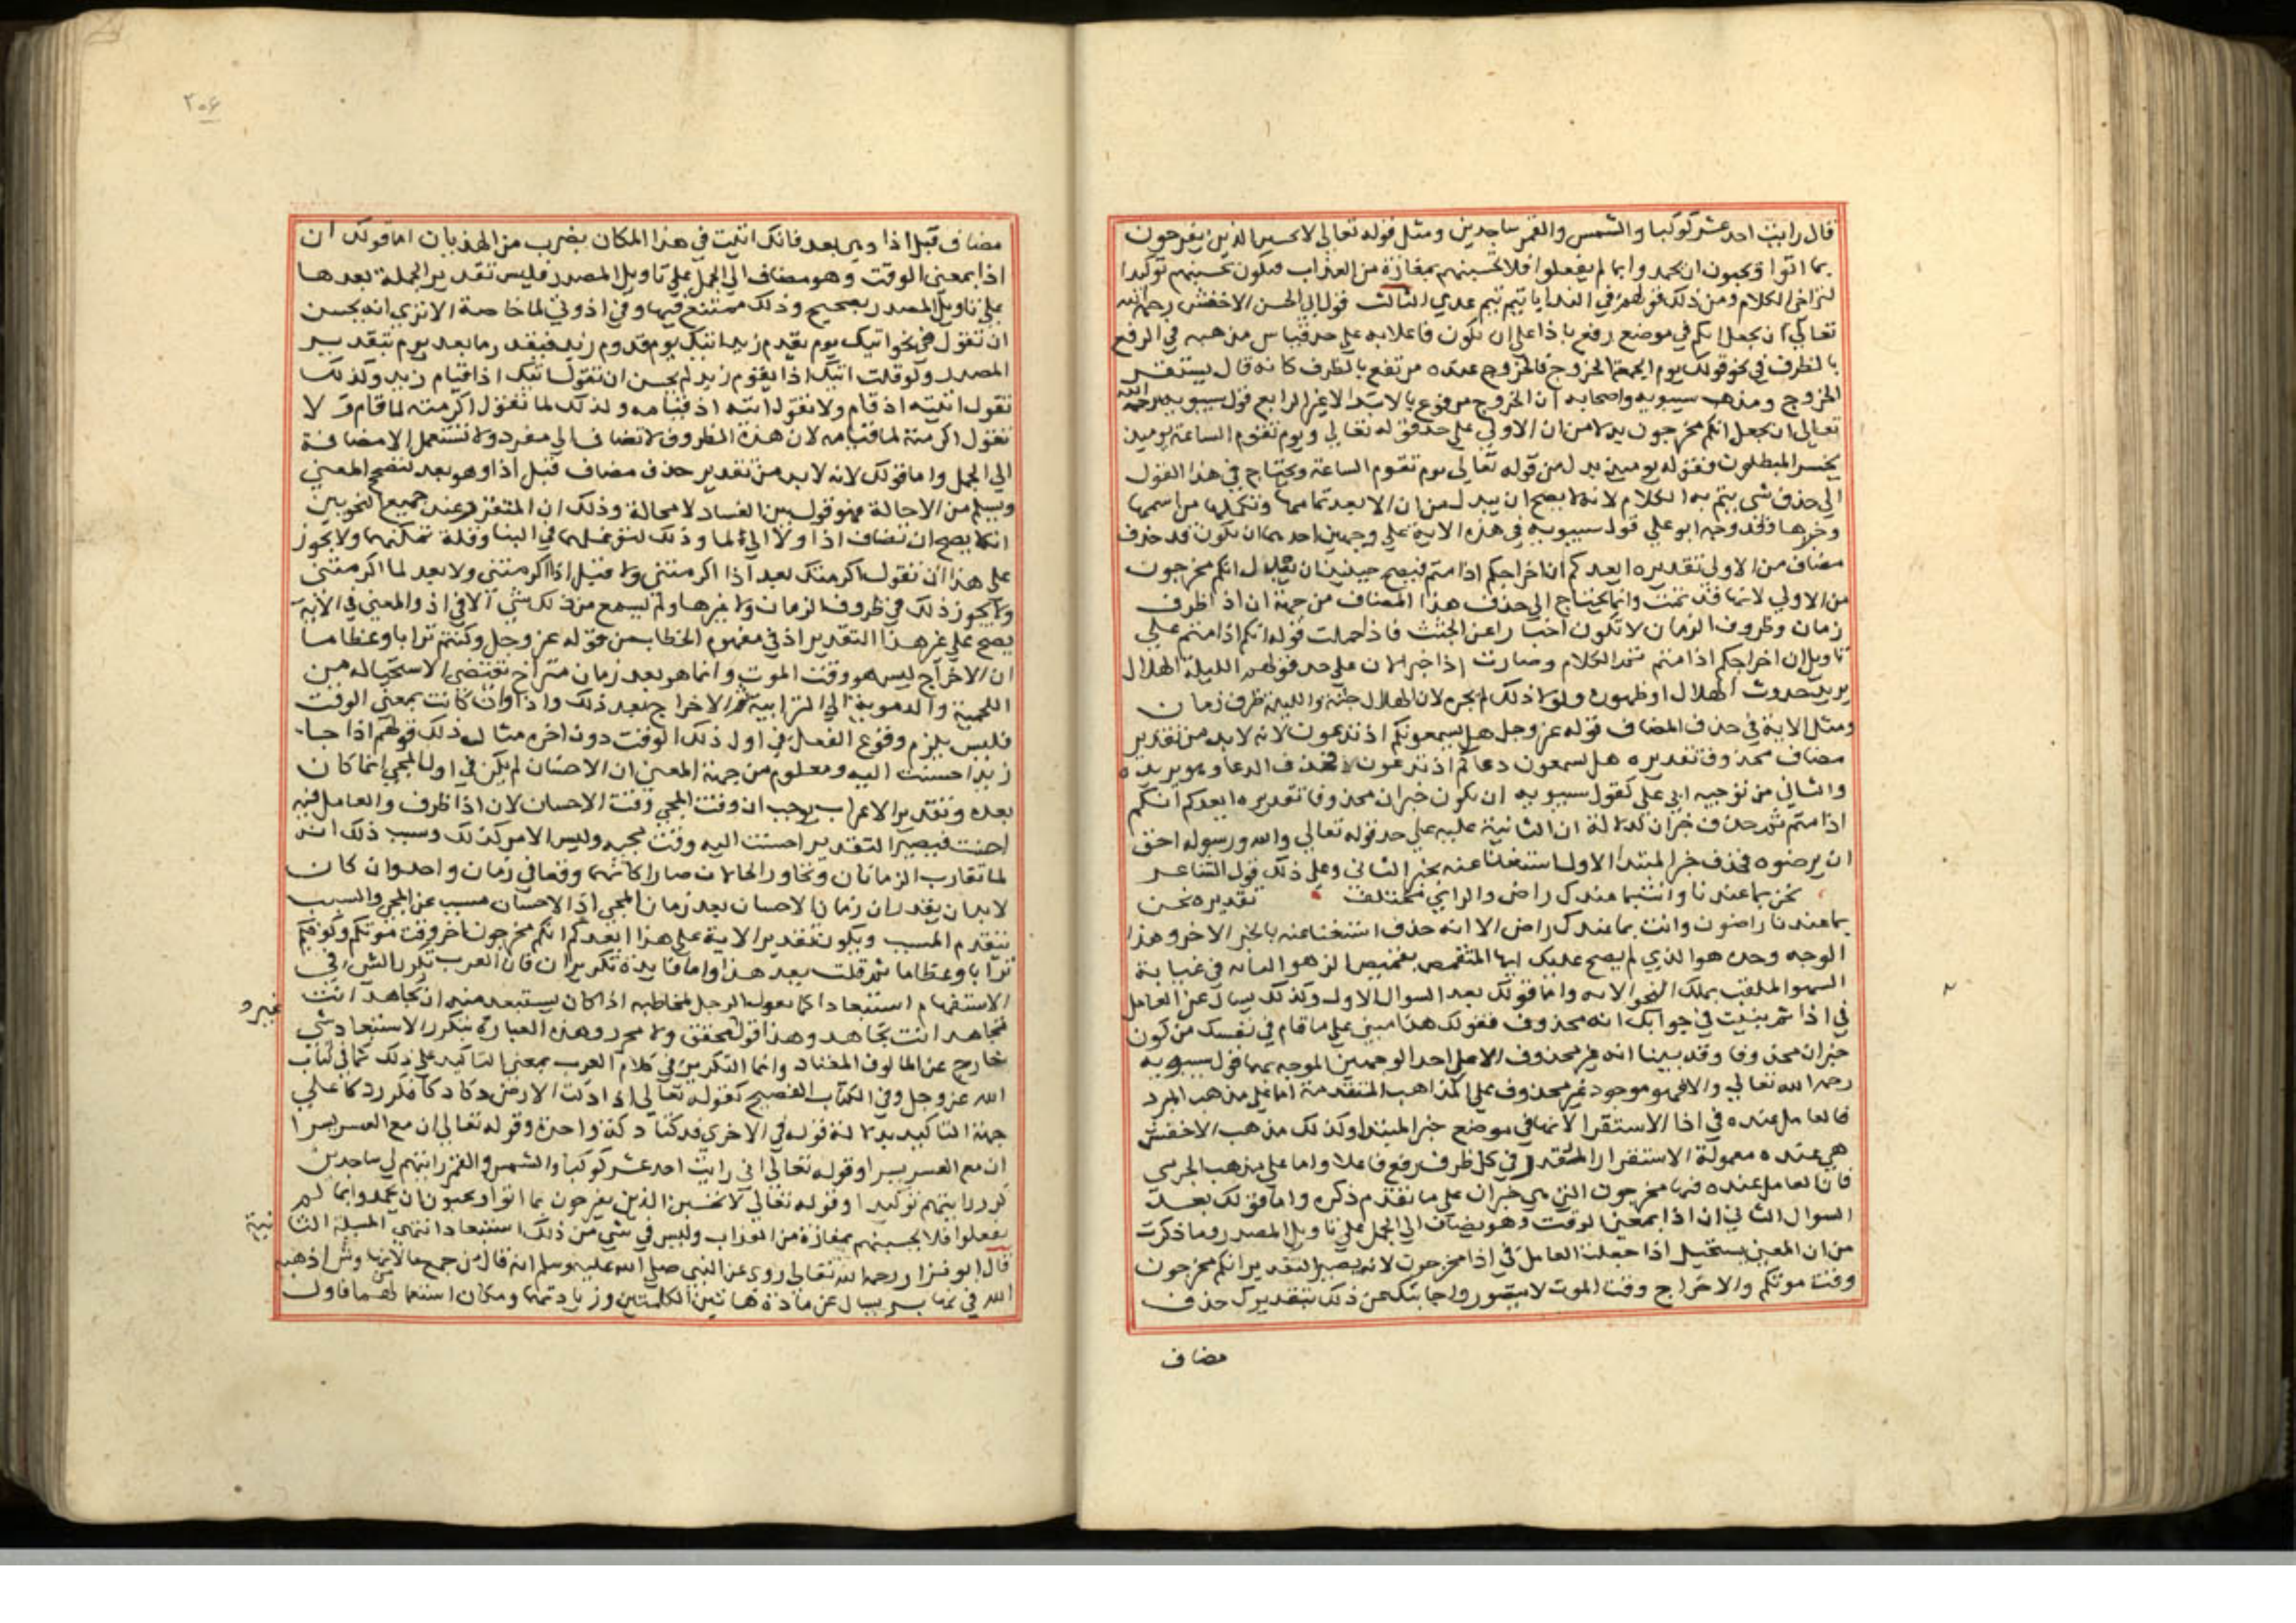 قال رايت احد عشر كوكبا والشمس والقمر ساجدين ومثل قوله تعالى لا تحسبن الذين يفرحون
بما اتوا ويحبون ان يحمدوا بما لم يفعلوا فلا تحسبنهم بمفازة من العذاب فيكون تحسبنهم توكيدا
لتراخي الكلام ومن ذلك قولهم في الندا يا تيم تيم عدي الثالث قول ابي الحسن الاخفش رحمه الله
تعالى ان يجعل انكم في موضع رفع باذا على ان يكون فاعلا به على حد قياس مذهبه في الرفع
بالظرف في نحو قولك يوم الجمعة الخروج فالخروج عنده مرتفع بالظرف كانه قال يستقر
الخروج ومذهب سيبويه واصحابه ان الخروج مرفوع بالابتدا لا غير الرابع قول سيبويه رحمه الله
تعالى ان يجعل انكم مخرجون بدلا من ان الاولى على حد قوله تعالى ويوم تقوم الساعة يوميذ
يخسر المبطلون فقوله يوميذ بدل من قوله تعالى يوم تقوم الساعة ويحتاج في هذا القول
الى حذف شي يتم به الكلام لانه لا يصح ان يبدل من ان الا بعد تمامها وتكملها من اسمها
وخبرها وقد وجه ابو علي قول سيبويه في هذه الاية على وجهين احدهما ان يكون قد حذف
مضاف من الاولى تقديره ايعدكم ان اخراجكم اذا متم فيصح حينئذ ان يبدل انكم مخرجون
من الاولى لانها قد تمت وانما يحتاج الى حذف هذا المضاف من جهة ان اذا ظرف
زمان وظروف الزمان لا تكون اخبارا عن الجثث فاذا حملت قوله انكم اذا متم على
تاويل ان اخراجكم اذا متم تم الكلام وصارت اذا خبر لان على حد قولهم الليلة الهلال
يريد حدوث الهلال او ظهوره ولولا ذلك لم يجز لان الهلال جثة والليلة ظرف زمان
ومثل الاية في حذف المضاف قوله عز وجل هل يسمعونكم اذ تدعون لانه لا بد من تقدير
مضاف محذوف تقديره هل يسمعون دعاكم اذ تدعون فحذف الدعا وهو يريده
والثاني من توجيه ابي علي لقول سيبويه ان يكون خبر ان محذوفا تقديره ايعدكم انكم
اذا متم ثم حذف خبر ان لدلالة ان الثانية عليه على حد قوله تعالى والله ورسوله احق
ان يرضوه فحذف خبر المبتدا الاول استغناء عنه بخبر الثاني وعلى ذلك قول الشاعر
نحن بما عندنا وانت بما عندك راض والراي مختلف تقديره نحن
بما عندنا راضون وانت بما عندك راض الا انه حذف استغنا عنه بالخبر الاخر وهذا
الوجه وحده هو الذي لم يصح عليك ايها المتقمص بقميص الزهو التايه في غيابة
السهو الملقب بملك النحو الا به واما قولك بعد السوال الاول وكذلك يسال عن العامل
في اذا ثم بنيت في جوابك انه محذوف فقولك هذا مبني على ما قام في نفسك من كون
خبر ان محذوفا وقد بينا انه غير محذوف الا على احد الوجهين الموجه بهما قول سيبويه
رحمه الله تعالى والا فهو موجود غير محذوف على المذاهب المتقدمة اما على مذهب المبرد
فالعامل عنده في اذا الاستقرار لانها في موضع خبر المبتدا وكذلك مذهب الاخفش
هي عنده معمولة الاستقرار المقدر في كل ظرف يرفع فاعلا واما على مذهب الجرمي
فان العامل عنده فيها مخرجون التي هي خبر ان على ما تقدم ذكره واما قولك بعد
السوال الثاني ان اذا بمعنى الوقت وهو يضاف الى الجمل على تاويل المصدر وما ذكرت
من ان المعنى يستحيل اذا جعلت العامل في اذا مخرجون لانه يصير التقدير انكم مخرجون
وقت موتكم والاخراج وقت الموت لا يتصور واجابتك عن ذلك بتقديرك حذف
مضاف
٢٠٤
مضاف قبل اذا وهي بعد فانك اتيت في هذا المكان بضرب من الهذيان اما قولك ان
اذا بمعنى الوقت وهو مضاف الى الجمل على تاويل المصدر فليس تقدير الجملة بعدها
على تاويل المصدر بصحيح وذلك ممتنع فيها وفي اذ وفي لما خاصة الا ترى انه يحسن
ان تقول في نحو اتيك يوم يقدم زيد اتيك يوم قدوم زيد فيقدر ما بعد يوم بتقدير
المصدر ولو قلت اتيك اذا يقوم زيد لم يحسن ان تقول اتيك اذا قيام زيد وكذلك
تقول اتيته اذ قام ولا تقول اتيته اذ قيامه وكذلك لما تقول اكرمته لما قام ولا
تقول اكرمته لما قيامه لان هذه الظروف لا تضاف الى مفرد ولا تستعمل الا مضافة
الى الجمل واما قولك لانه لا بد من تقدير حذف مضاف قبل اذا وهو بعد لتصح المعنى
ويسلم من الاحالة فهو قول بين الفساد لا محالة وذلك ان المتقرر عند جميع النحويين
انه لا يصح ان تضاف اذا ولا اذ الى لما وذلك لتوغلها في البنا وقلة تمكنها ولا يجوز
على هذا ان تقول اكرمتك بعد اذا اكرمتني ولا قبل اذا اكرمتني ولا بعد لما اكرمتني
ولا يجوز ذلك في ظروف الزمان ولا غيرها ولم يسمع من ذلك شي الا في اذ والمعنى في الاية
يصح على غير هذا التقدير اذ في مفهوم الخطاب من قوله عز وجل وكنتم ترابا وعظاما
ان الاخراج ليس هو وقت الموت وانما هو بعد زمان متراخ تقتضي الاستحالة من
اللحمية والدموية الى الترابية ثم الاخراج بعد ذلك واذا وان كانت بمعنى الوقت
فليس يلزم وقوع الفعل في اول ذلك الوقت دون اخره مثال ذلك قولهم اذا جا
زيد احسنت اليه ومعلوم من جهة المعنى ان الاحسان لم يكن في اول المجي انما كان
بعده وتقدير الاعراب يوجب ان وقت المجي وقت الاحسان لان اذا ظرف والعامل فيه
احسنت فيصير التقدير احسنت اليه وقت مجيه وليس الامر كذلك وسبب ذلك انه
لما تقارب الزمانان وتجاور الحالان صارا كانهما وقعا في زمان واحد وان كان
لا بد ان يقدر ان زمان الاحسان بعد زمان المجي اذ الاحسان مسبب عن المجي والسبب
يتقدم المسبب ويكون تقدير الاية على هذا ايعدكم انكم مخرجون اخر وقت موتكم وكونكم
ترابا وعظاما ثم قلت بعد هذا واما فايدة تكرير ان فان العرب تكرر الشي في
الاستفهام استبعادا كما يقول الرجل لمخاطبه اذا كان يستبعد منه ان يجاهد انت
تجاهد انت تجاهد وهذا قول محقق ولا محرر وهذه العبارة بتكرر الاستبعاد شي
غير و
خارج عن المالوف المعتاد وانما التكرير في كلام العرب بمعنى التاكيد على ذلك كما في كتاب
الله عز وجل وفي الكتاب الفصيح كقوله تعالى اذا دكت الارض دكا دكا فكرر دكا على
جهة التاكيد بدلالة قوله في الاخرى فدكتا دكة واحدة وقوله تعالى ان مع العسر يسرا
ان مع العسر يسرا وقوله تعالى اني رايت احد عشر كوكبا والشمس والقمر رايتهم لي ساجدين
كرر رايتهم توكيدا وقوله تعالى لا تحسبن الذين يفرحون بما اتوا ويحبون ان يحمدوا بما لم
يفعلوا فلا تحسبنهم بمفازة من العذاب وليس في شي من ذلك استبعاد انتهى المسيلة الثا نية
قال ابو نزار رحمه الله تعالى روي عن النبي صلى الله عليه وسلم انه قال من جمع مالا من نهاوش اذهبه
الله في نهابر يسال عن مادة هاتين الكلمتين وزيادتهما ومكان استعمالهما فاول